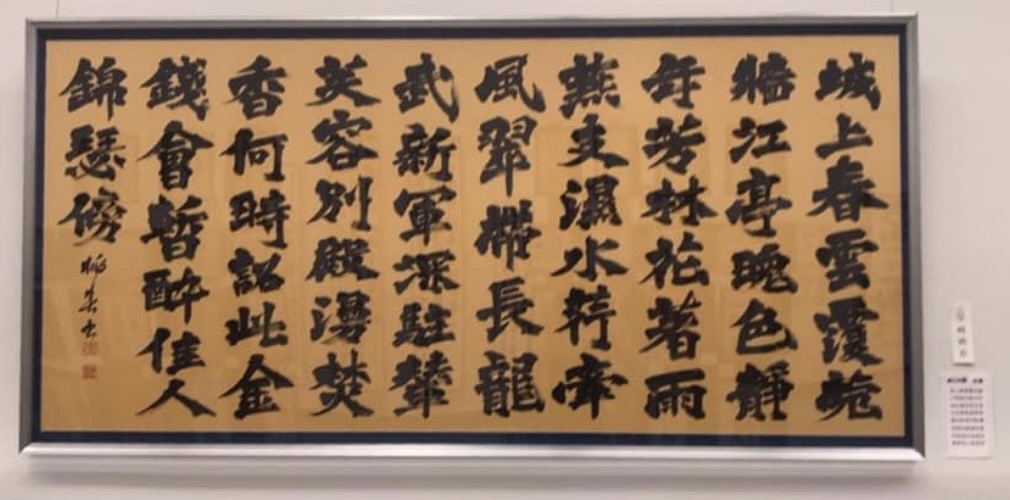 城上春雲覆苑
牆江亭晚色靜
年芳林花著雨
燕支濕水荇牽
風翠帶長龍
武新軍深駐輦
芙容別殿漫焚
香何時詔此金
錢會暫醉佳人
錦瑟傍